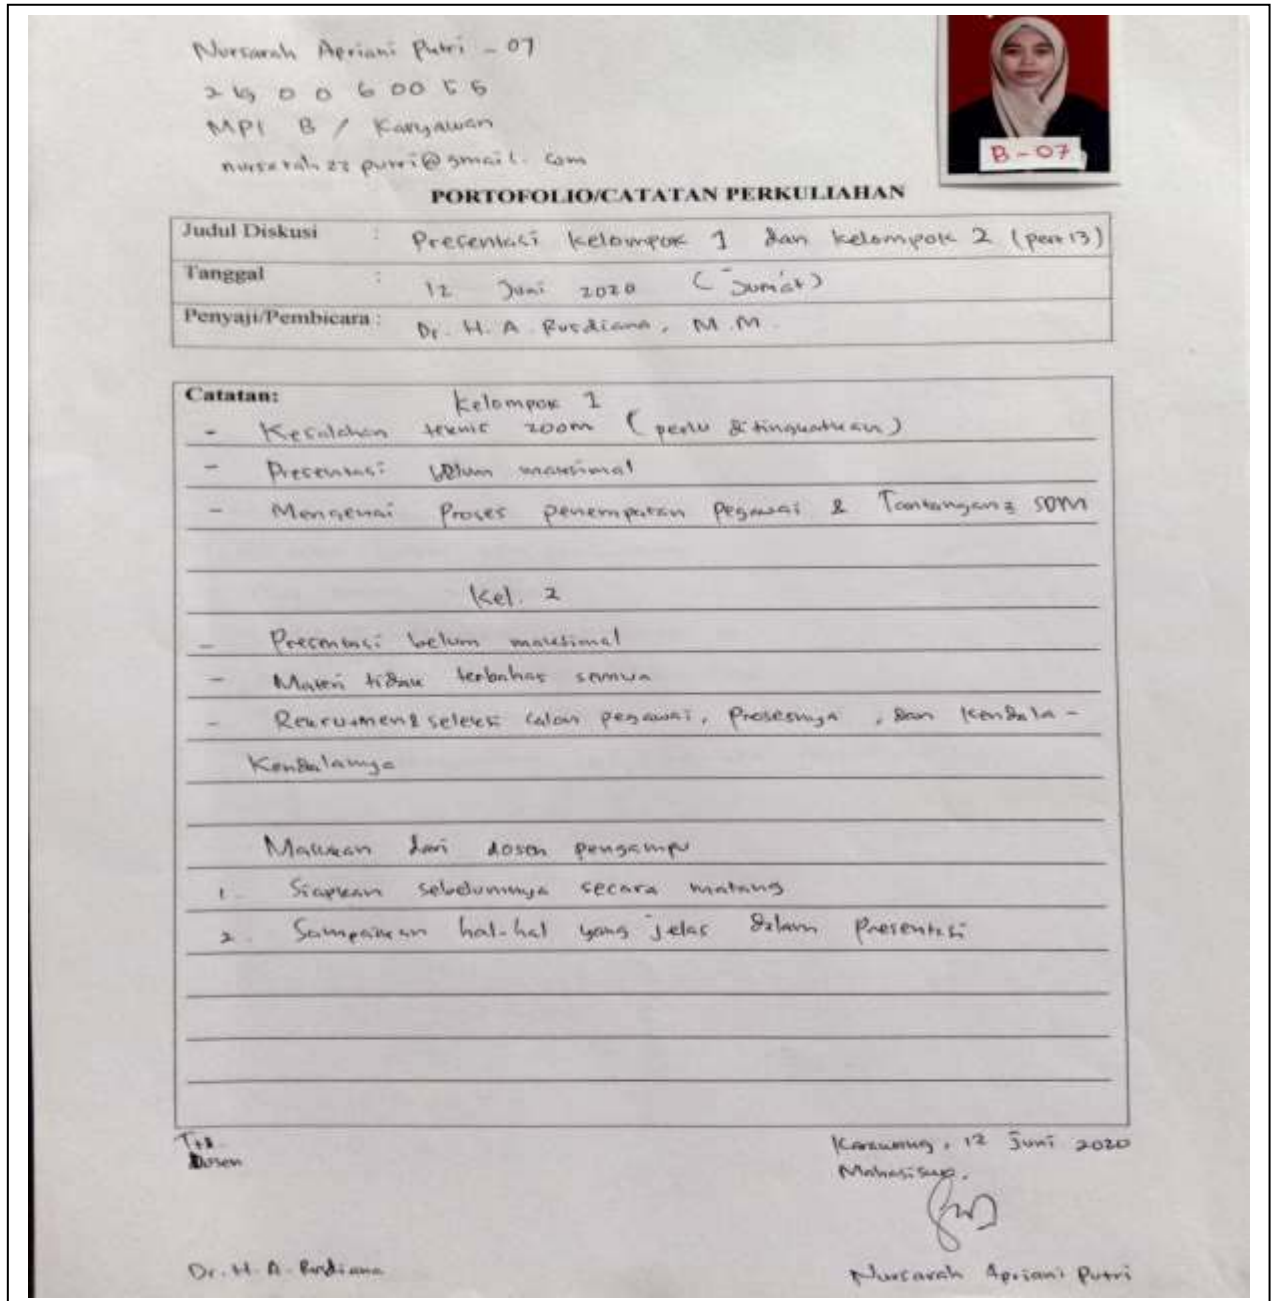 Nursarah Apriani Putri - 07
MPI B / Karyawan
B-07
PORTOFOLIO/CATATAN PERKULIAHAN
Judul Diskusi : Presentasi kelompok 1 dan kelompok 2 (pert 13)
Tanggal : 12 Juni 2020 (Jum'at)
Penyaji/Pembicara : Dr. H. A. Rusdiana, M.M.
Catatan:
Kelompok 1
- Kesalahan teknis zoom (perlu ditingkatkan)
- Presentasi belum maksimal
- Mengenai Proses penempatan Pegawai & Tantangan2 SDM
Kel. 2
- Presentasi belum maksimal
- Materi tidak terbahas semua
- Rekrutmen & seleksi calon pegawai, Prosesnya, dan kendala-
Kendalanya
Masukan dari dosen pengampu
1. Siapkan sebelumnya secara matang
2. Sampaikan hal-hal yang jelas dalam Presentasi
Ttd
Dosen
Karawang, 12 Juni 2020
Mahasiswa.
Dr. H. A. Rusdiana
Nursarah Apriani Putri